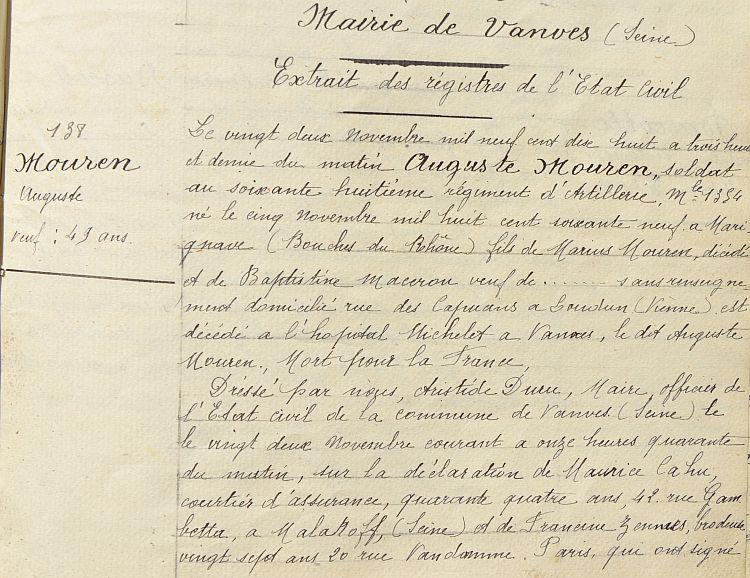 Mairie de Vanves (Seine)
Extrait des régistres de l'Etat Civil
138
Mouren
Auguste
veuf : 49 ans.
Le vingt deux Novembre mil neuf cent dix huit a trois heures
et demie du matin Auguste Mouren, soldat
au soixante huitième régiment d'Artillerie, Mle 1354
né le cinq Novembre mil huit cent soixante neuf a Mari
gnave (Bouches du Rhône) fils de Marius Mouren, décédé
et de Baptistine Maceron veuf de ....... sans renseigne
ment domicilié rue des Capucins a Loudun (Vienne) est
décédé a l'hopital Michelet a Vanves, le dit Auguste
Mouren., Mort pour la France,
Dressé par nous, Aristide Duru, Maire, officier de
l'Etat civil de la commune de Vanves (Seine) le
le vingt deux Novembre courant a onze heures quarante
du matin, sur la déclaration de Maurice Cahu,
courtier d'assurance, quarante quatre ans, 42 rue Gam
betta, a Malakoff, (Seine) et de Francine brodeuse
vingt sept ans 20 rue Vandamme. Paris, qui ont signé